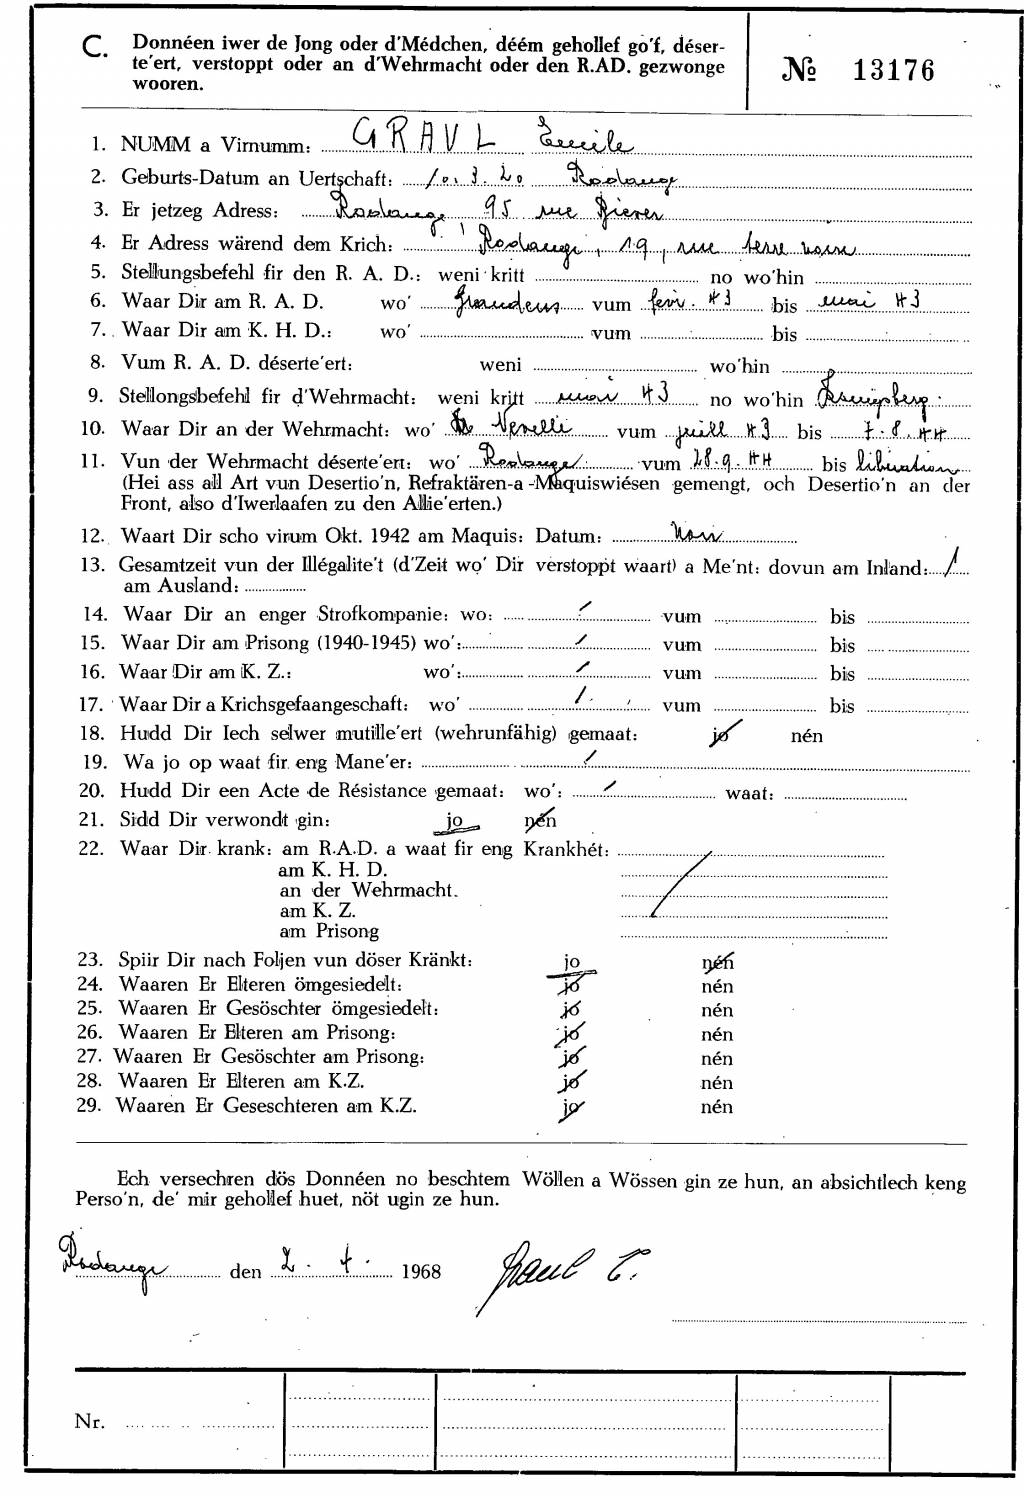 C. Donnéen iwer de Jong oder d'Médchen, déém gehollef go'f, déser-
te'ert, verstoppt oder an d'Wehrmacht oder den R.AD. gezwonge
wooren.
№ 13176
1. NUMM a Virnumm: GRAUL Emile
2. Geburts-Datum an Uertschaft: 10.3.20 Rodange
3. Er jetzeg Adress: Rodange 95 rue
4. Er Adress wärend dem Krich: Rodange, 19, rue
5. Stellungsbefehl fir den R. A. D.: weni kritt no wo'hin
6. Waar Dir am R. A. D. wo' Graudens vum fevr. 43 bis mai 43
7. Waar Dir am K. H. D.: wo' vum bis
8. Vum R. A. D. déserte'ert: weni wo'hin
9. Stellongsbefehl fir d'Wehrmacht: weni kritt mai 43 no wo'hin Kœnigsberg
10. Waar Dir an der Wehrmacht: wo' Nevelli vum juill 43 bis 7.8.44
11. Vun der Wehrmacht déserte'ert: wo' Rodange vum 28.9.44 bis libération
(Hei ass all Art vun Desertio'n, Refraktären-a -Maquiswiésen gemengt, och Desertio'n an der
Front, also d'Iwerlaafen zu den Allie'erten.)
12. Waart Dir scho virum Okt. 1942 am Maquis: Datum: Non
13. Gesamtzeit vun der Illégalite't (d'Zeit wo' Dir verstoppt waart) a Me'nt: dovun am Inland: /
am Ausland:
14. Waar Dir an enger Strofkompanie: wo: / vum bis
15. Waar Dir am Prisong (1940-1945) wo': / vum bis
16. Waar Dir am K. Z.: wo': / vum bis
17. Waar Dir a Krichsgefaangeschaft: wo' / vum bis
18. Hudd Dir Iech selwer mutille'ert (wehrunfähig) gemaat: jo nén
19. Wa jo op waat fir eng Mane'er: /
20. Hudd Dir een Acte de Résistance gemaat: wo': / waat:
21. Sidd Dir verwondt gin: jo nén
22. Waar Dir krank: am R.A.D. a waat fir eng Krankhét: /
am K. H. D.
an der Wehrmacht.
am K. Z.
am Prisong
23. Spiir Dir nach Foljen vun döser Kränkt: jo nén
24. Waaren Er Elteren ömgesiedelt: jo nén
25. Waaren Er Gesöschter ömgesiedelt: jo nén
26. Waaren Er Elteren am Prisong: jo nén
27. Waaren Er Gesöschter am Prisong: jo nén
28. Waaren Er Elteren am K.Z. jo nén
29. Waaren Er Geseschteren am K.Z. jo nén
Ech versechren dös Donnéen no beschtem Wöllen a Wössen gin ze hun, an absichtlech keng
Perso'n, de' mir gehollef huet, nöt ugin ze hun.
Rodange den 2. 4. 1968 Graul E.
Nr.